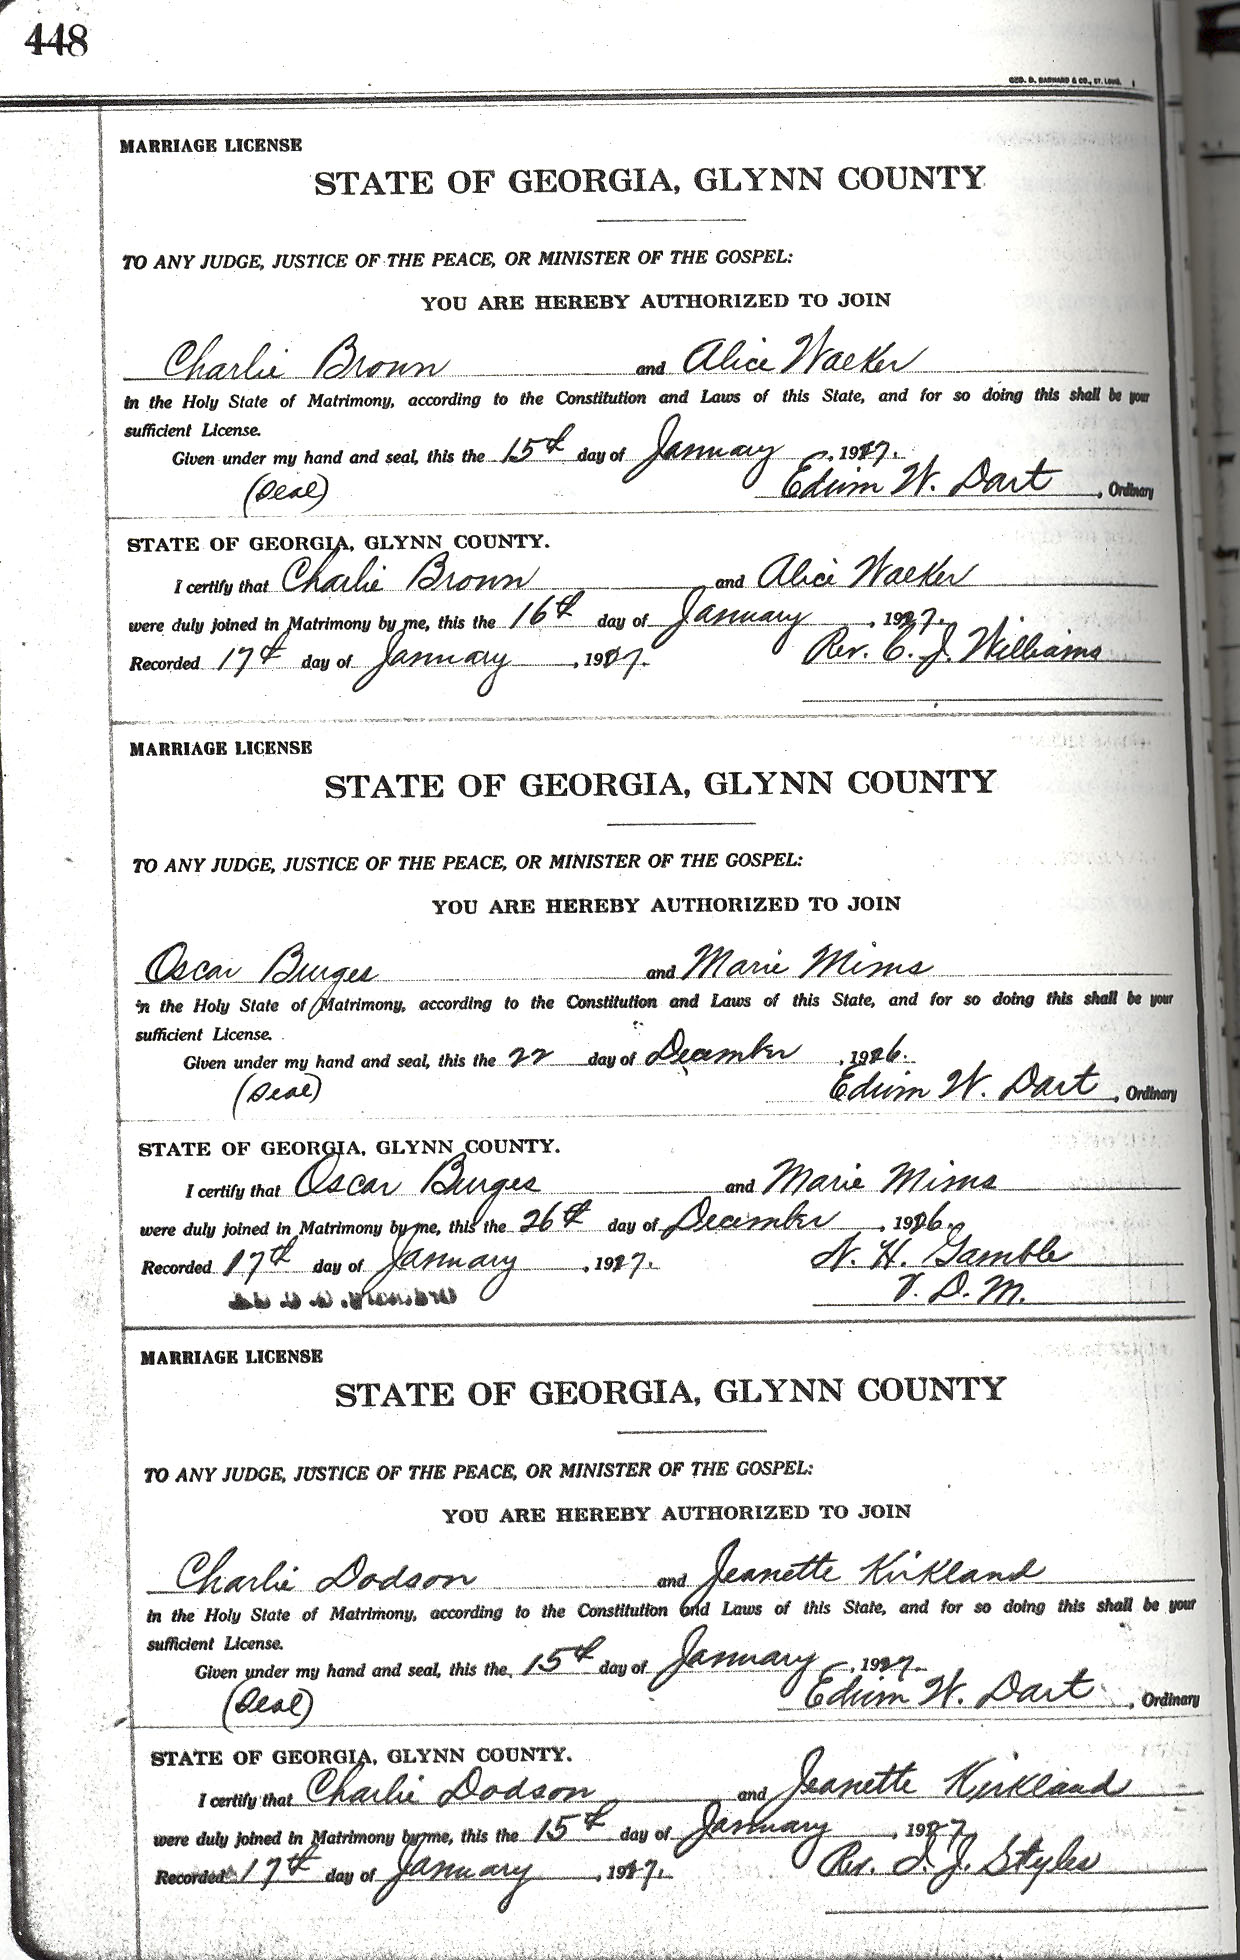 448
GEO. D. BARNARD & CO., ST. LOUIS.
MARRIAGE LICENSE
STATE OF GEORGIA, GLYNN COUNTY
TO ANY JUDGE, JUSTICE OF THE PEACE, OR MINISTER OF THE GOSPEL:
YOU ARE HEREBY AUTHORIZED TO JOIN
Charlie Brown and Alice Walker
in the Holy State of Matrimony, according to the Constitution and Laws of this State, and for so doing this shall be your
sufficient License.
Given under my hand and seal, this the 15th day of January, 1927.
(Seal) Edwin W. Dart, Ordinary
STATE OF GEORGIA, GLYNN COUNTY.
I certify that Charlie Brown and Alice Walker
were duly joined in Matrimony by me, this the 16th day of January, 1927.
Recorded 17th day of January, 1927. Rev. C. J. Williams
MARRIAGE LICENSE
STATE OF GEORGIA, GLYNN COUNTY
TO ANY JUDGE, JUSTICE OF THE PEACE, OR MINISTER OF THE GOSPEL:
YOU ARE HEREBY AUTHORIZED TO JOIN
Oscar Burges and Marie Mims
in the Holy State of Matrimony, according to the Constitution and Laws of this State, and for so doing this shall be your
sufficient License.
Given under my hand and seal, this the 22 day of December, 1926.
(Seal) Edwin W. Dart, Ordinary
STATE OF GEORGIA, GLYNN COUNTY.
I certify that Oscar Burges and Marie Mims
were duly joined in Matrimony by me, this the 26th day of December, 1926.
Recorded 17th day of January, 1927. N. H. Gamble
V. D. M.
MARRIAGE LICENSE
STATE OF GEORGIA, GLYNN COUNTY
TO ANY JUDGE, JUSTICE OF THE PEACE, OR MINISTER OF THE GOSPEL:
YOU ARE HEREBY AUTHORIZED TO JOIN
Charlie Dodson and Jeanette Kirkland
in the Holy State of Matrimony, according to the Constitution and Laws of this State, and for so doing this shall be your
sufficient License.
Given under my hand and seal, this the 15th day of January, 1927.
(Seal) Edwin W. Dart, Ordinary
STATE OF GEORGIA, GLYNN COUNTY.
I certify that Charlie Dodson and Jeanette Kirkland
were duly joined in Matrimony by me, this the 15th day of January, 1927
Recorded 17th day of January, 1927. Rev. I. J. Styles